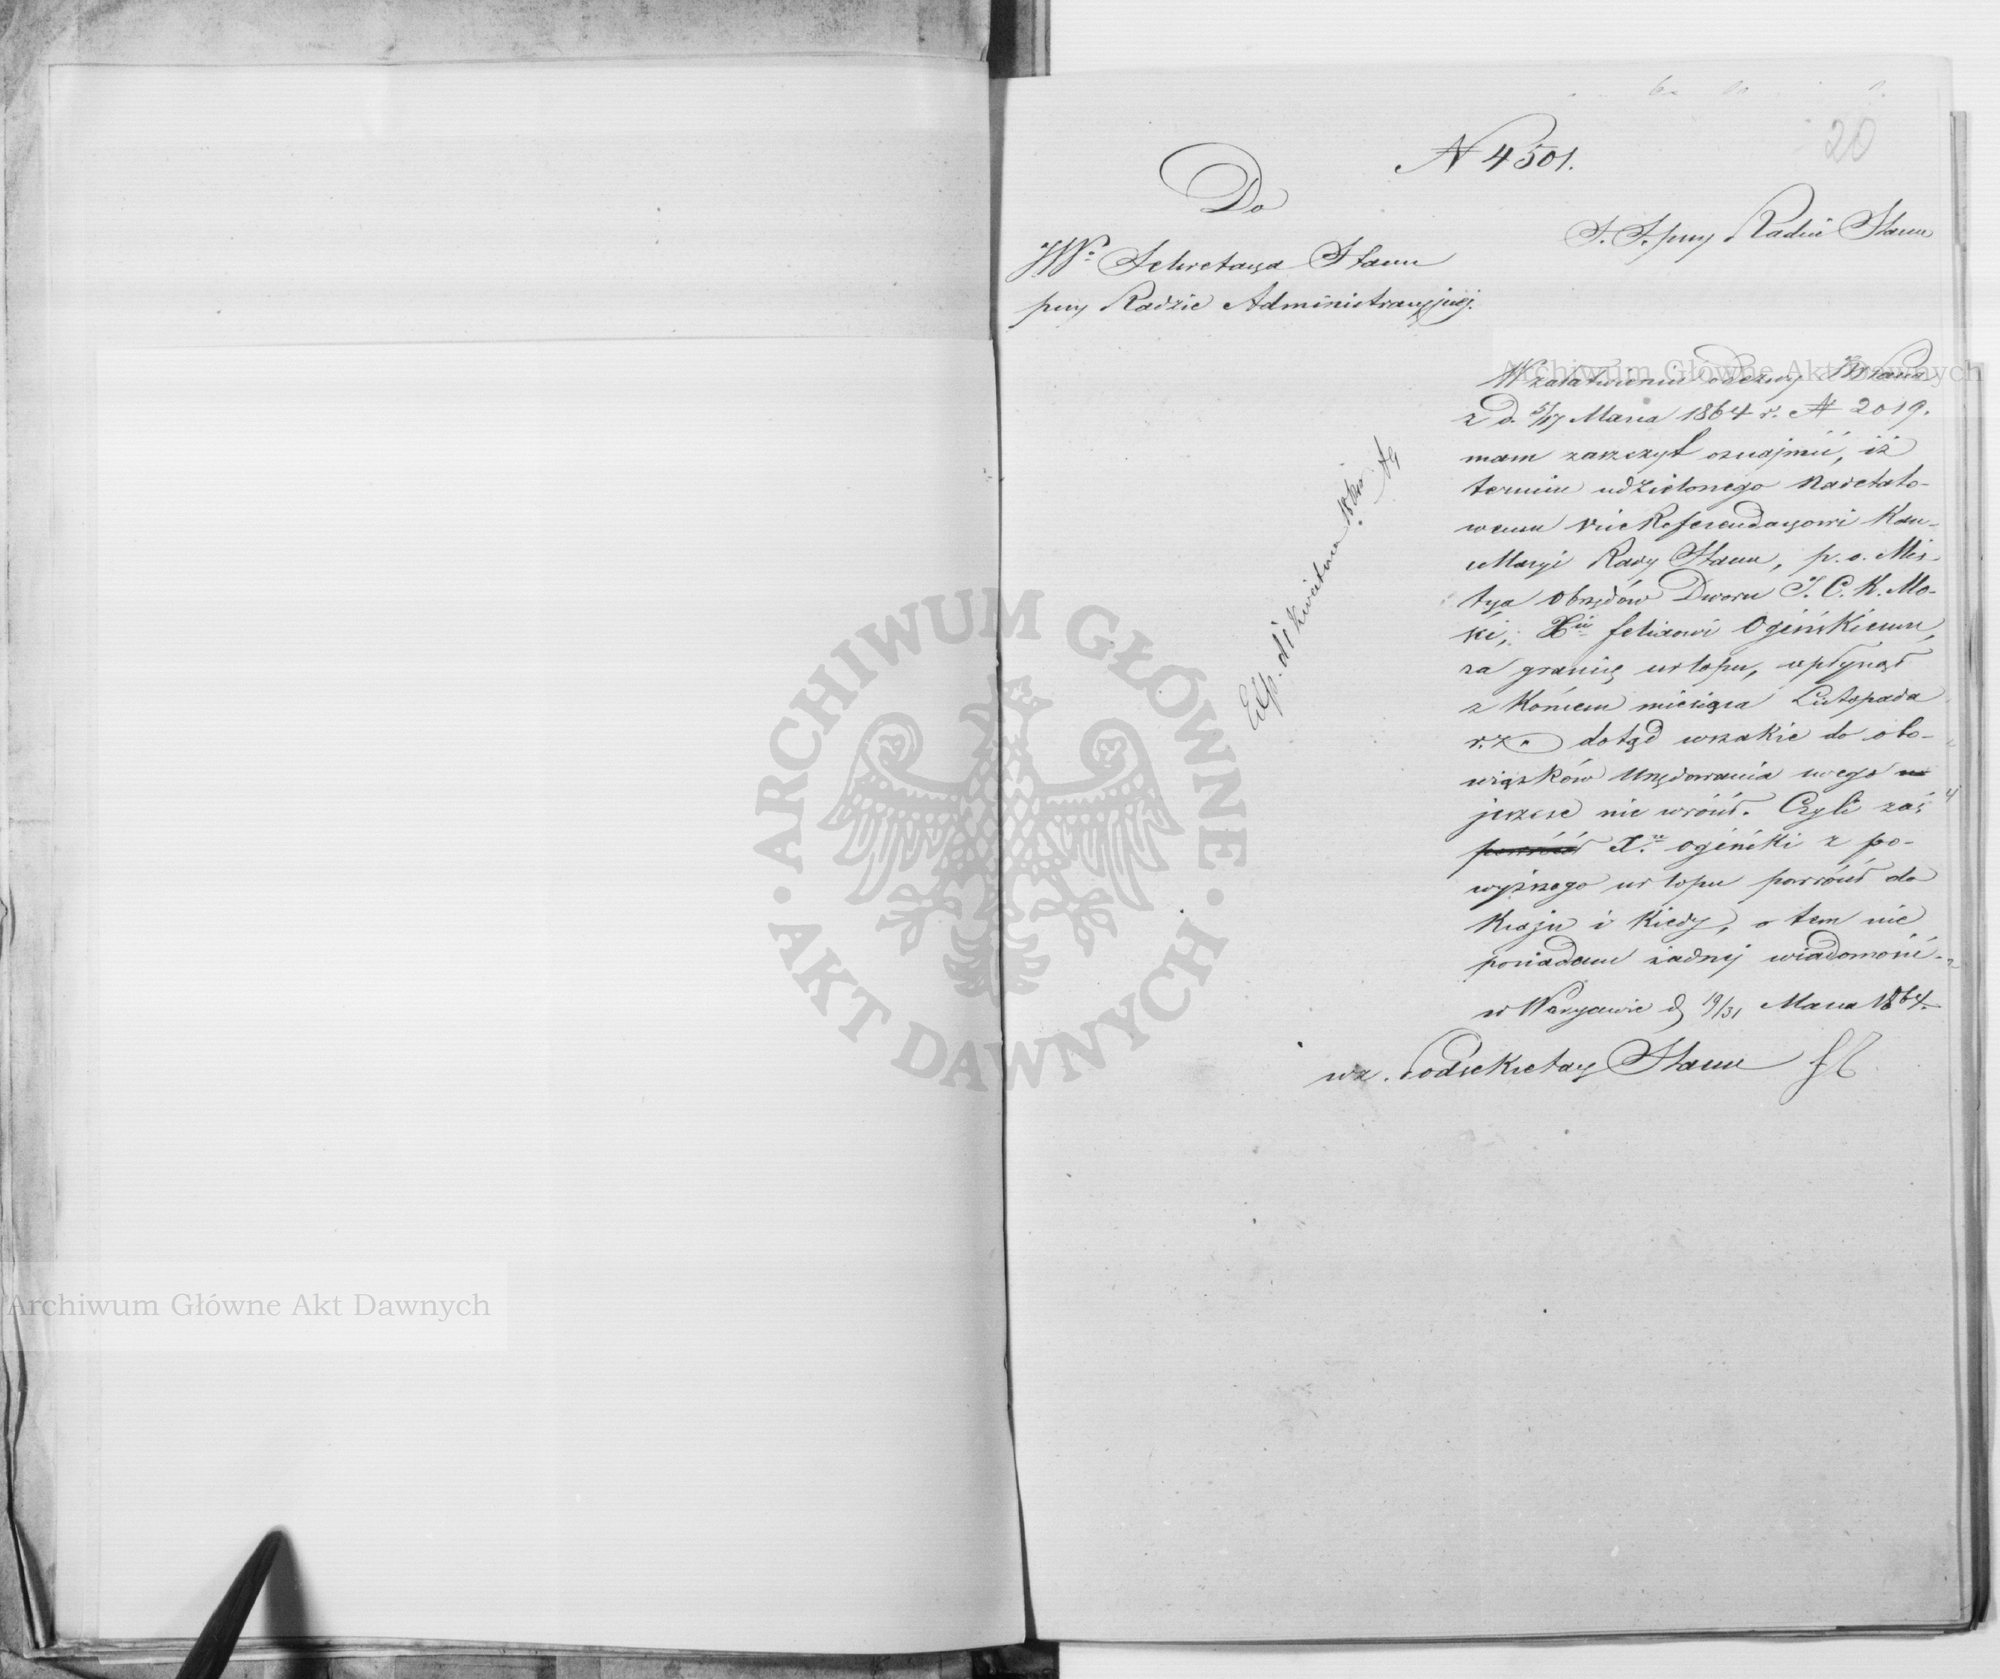 20
N 4501.
Do
JWo Sekretarza Stanu
przy Radzie Administracyjnej.
S. S. przy Radzie Stanu
W załatwieniu odezwy JWPana
z d. 5/17 Marca 1864 r. N 2019.
mam zaszczyt oznajmić, iż
termin udzielonego Nadetato-
wemu Vice Referendarzowi Kan-
cellaryi Rady Stanu, p. o. Mis-
trza Obrzędów Dworu J. C. K. Mo-
ści, Xciu Felixowi Ogińskiemu,
za granicę urlopu, upłynął
z końcem miesiąca Listopada
r. z. dotąd wszakże do obo-
wiązków Urzędowania swego
jeszcze nie wrócił. Czyli zaś
powrócił Xże Ogiński z po-
wyższego urlopu powrócił do
Kraju i kiedy, o tem nie
posiadam żadnej wiadomości.
w Warszawie d. 19/31 Marca 1864.
wz. Podsekretarz Stanu
Exp. d. 1 Kwietnia
Archiwum Główne Akt Dawnych
Archiwum Główne Akt Dawnych
ARCHIWUM GŁÓWNE
AKT DAWNYCH